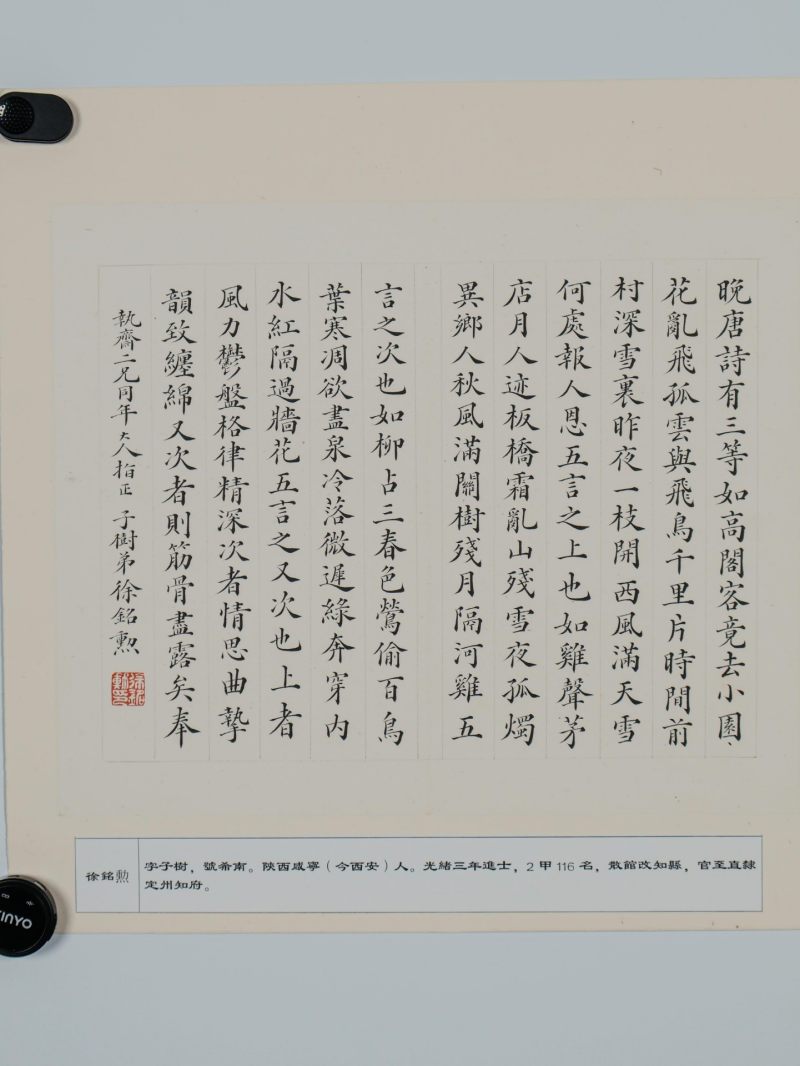 晚唐詩有三等如高閣客竟去小園丶
花亂飛孤雲與飛鳥千里片時間前
村深雪裏昨夜一枝開西風滿天雪
何處報人恩五言之上也如雞聲茅
店月人迹板橋霜亂山殘雪夜孤燭
異鄉人秋風滿關樹殘月隔河雞五
言之次也如柳占三春色鶯偷百鳥
葉寒凋欲盡泉冷落微遲綠奔穿內
水紅隔過牆花五言之又次也上者
風力鬱盤格律精深次者情思曲摯
韻致纏綿又次者則筋骨盡露矣奉
執齋二兄同年大人指正 子樹弟徐銘勲
徐銘勳印
徐銘勳
字子樹，號希南。陝西咸寧（今西安）人。光緒三年進士，2 甲 116 名，散館改知縣，官至直隸
定州知府。
INYO